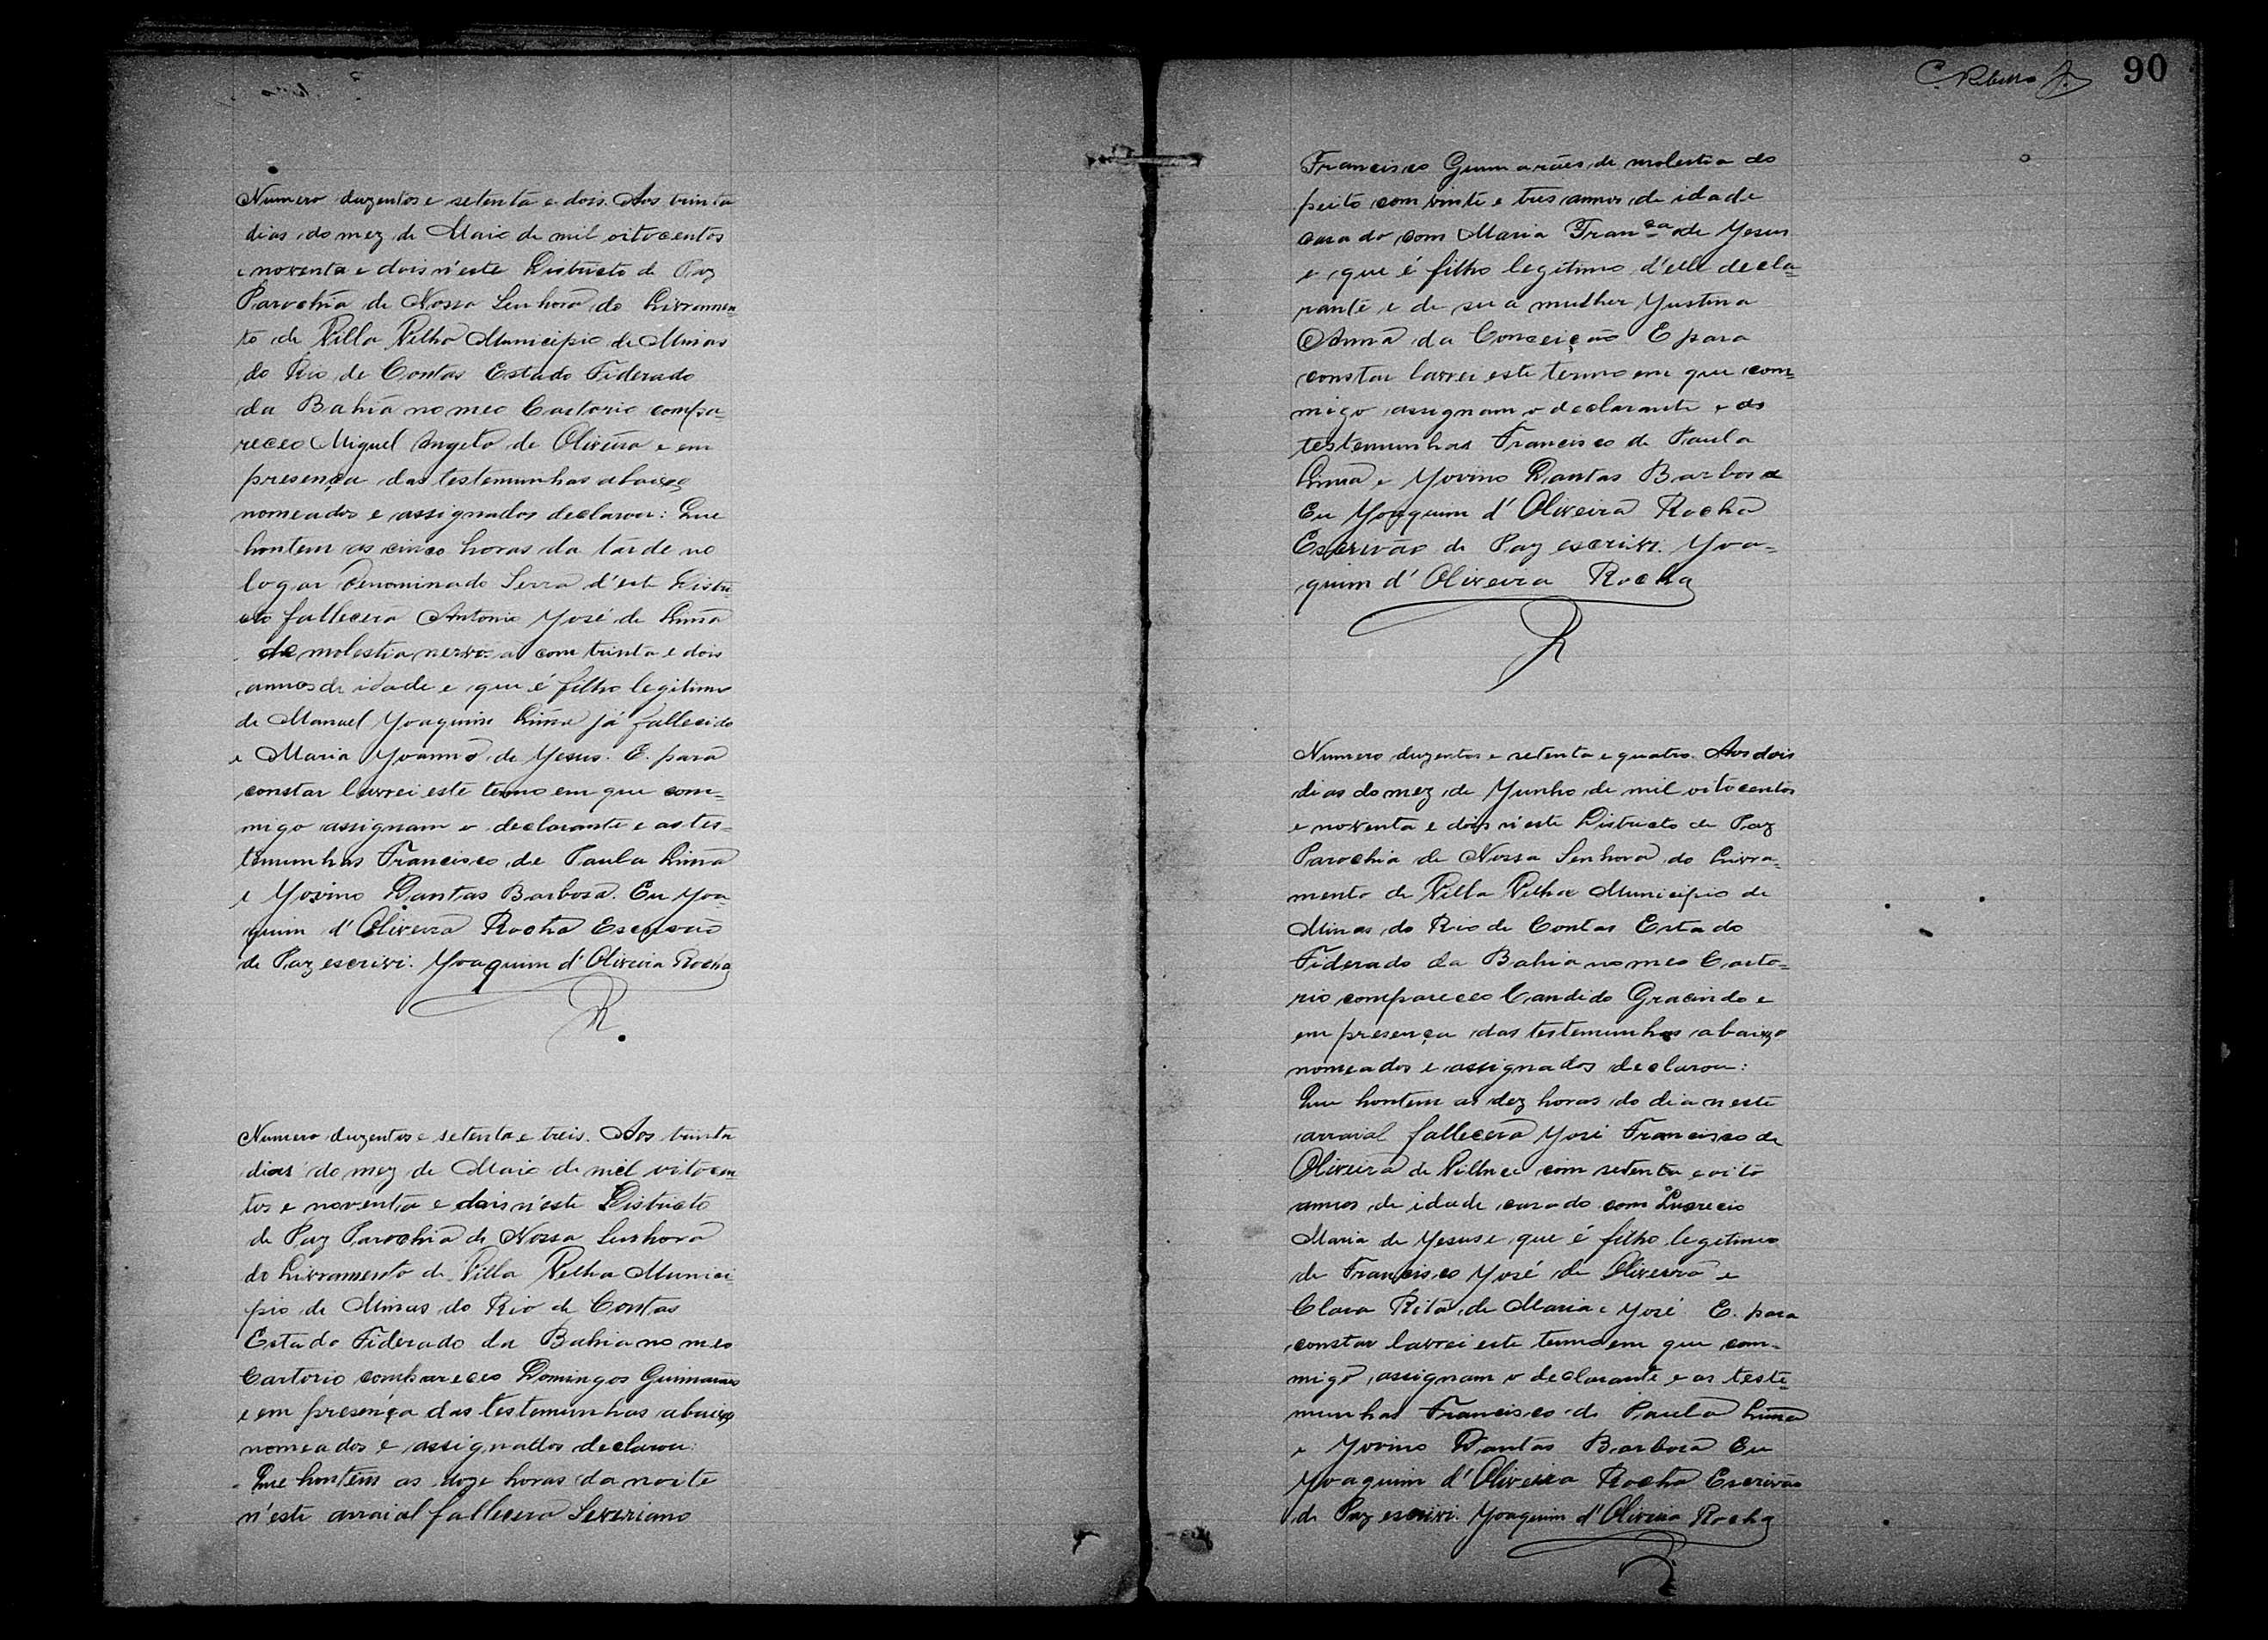 Numero duzentos e setenta e dois. Aos trinta
dias do mez de Maio de mil oitocentos
e noventa e dois n'este Districto de Paz
Parochia de Nossa Senhora do Livramen=
to de Villa Velha Municipio de Minas
do Rio de Contas Estado Fiderado
da Bahia no meo Cartorio compa=
receo Miguel Angelo de Oliveira e em
presença das testemunhas abaixo
nomeados e assignados declarou: Que
hontem as cinco horas da tarde no
logar denominado Serra d'este Distri=
cto fallecera Antonio José de Lima
de molestia nervosa com trinta e dois
annos de idade e que é filho legitimo
de Manuel Joaquim Lima já fallecido
e Maria Joanna de Jesus. E. para
constar lavrei este termo em que com=
migo assignam o declarante e as tes=
temunhas Francisco de Paula Lima
e Jovino Dantas Barbosa. Eu Joa=
quim d'Oliveira Rocha Escrivão
de Paz escrivi. Joaquim d'Oliveira Rocha
R.
Numero duzentos e setenta e treis. Aos trinta
dias do mez de Maio de mil oitocen=
tos e noventa e dois n'este Districto
de Paz Parochia de Nossa Senhora
do Livramento de Villa Velha Munici
pio de Minas do Rio de Contas
Estado Fiderado da Bahia no meo
Cartorio compareceo Domingos Guimarães
e em presença das testemunhas abaixo
nomeados e assignados declarou:
Que hontem as doze horas da noite
n'este arraial fallecera Severiano
C. Ribeiro Jr. 90
Francisco Guimarães de molestia do
peito com vinte e tres annos de idade
casado com Maria Fran.ca de Jesus
e que é filho legitimo d'elle decla=
rante e de sua mulher Justina
Anna da Conceição E para
constar lavrei este termo em que com=
migo assignam o declarante e as
testemunhas Francisco de Paula
Lima e Jovino Dantas Barbosa
Eu Joaquim d'Oliveira Rocha
Escrivão de Paz escrivi. Joa=
quim d'Oliveira Rocha
R
Numero duzentos e setenta e quatro. Aos dois
dias do mez de Junho de mil oitocentos
e noventa e dois n'este Districto de Paz
Parochia de Nossa Senhora do Livra=
mento de Villa Velha Municipio de
Minas do Rio de Contas Estado
Fiderado da Bahia no meo Carto=
rio compareceo Candido Gracindo e
em presença das testemunhas abaixo
nomeados e assignados declarou:
Que hontem as dez horas do dia neste
arraial fallecera José Francisco de
Oliveira de Velhice com setenta e oito
annos de idade casado com Lucrecio
Maria de Jesus e que é filho legitimo
de Francisco José de Oliveira e
Clara Rita de Maria e José E. para
constar lavrei este termo em que com=
migo assignam o declarante e as teste=
munhas Francisco de Paula Lima
e Jovino Dantas Barbosa Eu
Joaquim d'Oliveira Rocha Escrivão
de Paz escrivi. Joaquim d'Oliveira Rocha